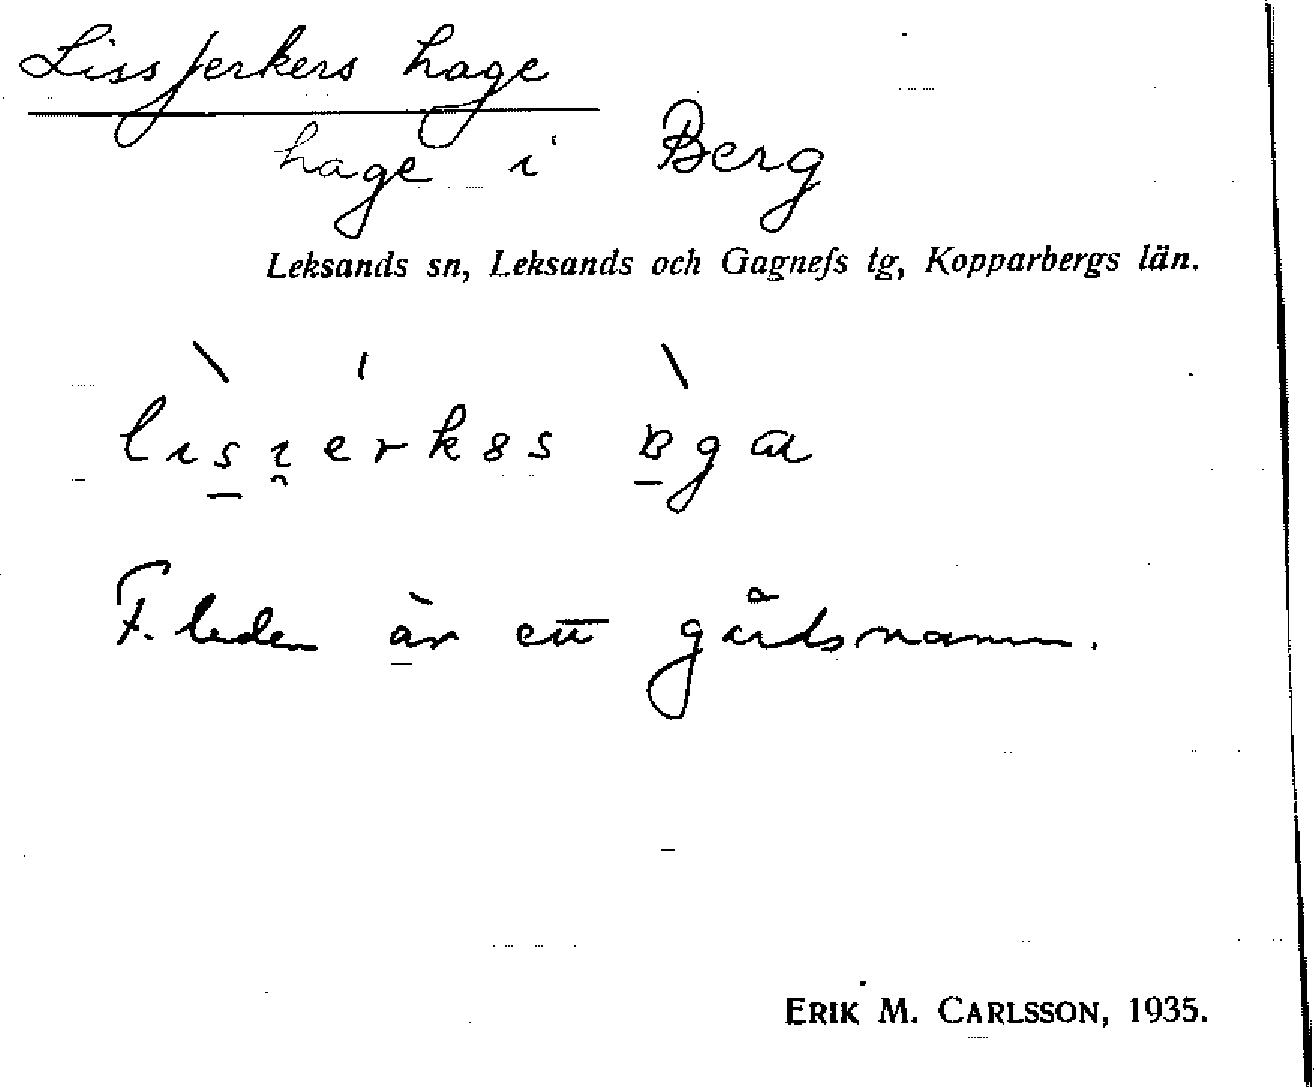 Liss Jerkers hage
hage i Berg
Leksands sn, Leksands och Gagnefs tg, Kopparbergs län.
F. leden är ett gårdsnamn.
ERIK M. CARLSSON, 1935.